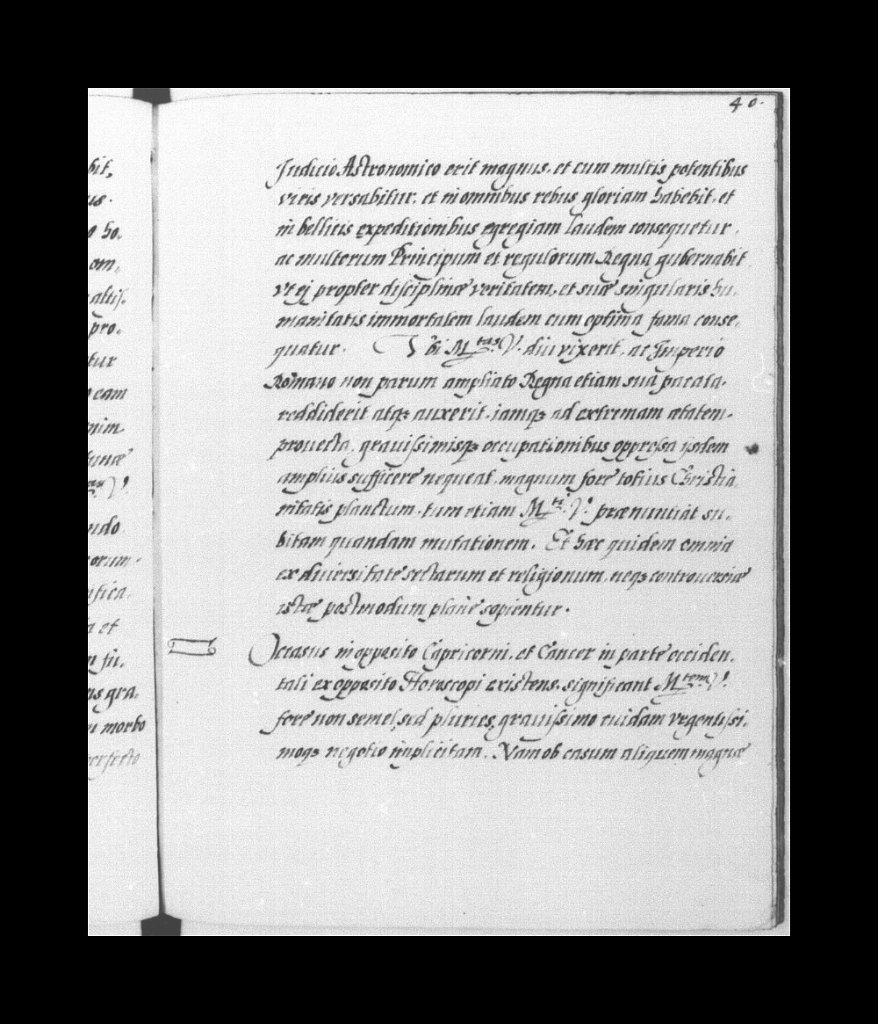 bit,
us.
o ho.
om,
altis.
pro.
tur
o eam
nim
tunæ
V.
ndo
orum.
nfica.
a et
m fu.
us gra.
ri morbo
perfecto
40.
Judicio Astronomico erit magnus, et cum multis potentibus
viris versabitur, et in omnibus rebus gloriam habebit, et
in bellicis expeditionibus egregiam laudem consequetur,
ac multorum Principum et regulorum Regna gubernabit
vt ej propter disciplinæ veritatem, et suæ singularis hu,
manitatis immortalem laudem cum optima fama conse,
quatur. Vbi M.tas V. diu vixerit, ac Imperio
Romano non parum ampliato Regna etiam sua parata,
reddiderit atqꝫ auxerit, iamqꝫ ad extremam ætatem,
prouecta, grauissimisqꝫ occupationibus oppressa ijsdem
amplius sufficere nequeat, magnum fore totius Christia
nitatis planctum, tum etiam M.ti V. prænuntiat su,
bitam quandam mutationem. Et hæc quidem omnia
ex diuersitate sectarum et religionum, neqꝫ controuersiæ
istæ postmodum plane sopientur.
Occasus in opposito Capricorni, et Cancer in parte occiden,
tali ex opposito Horoscopi existens, significant M.tem V.
fore non semel, sed pluries grauissimo cuidam vrgentissi,
moqꝫ negotio implicitam. Nam ob casum aliquem magnæ